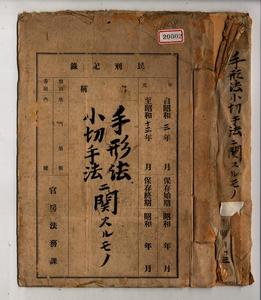 20002
民刑記録
名稱
自昭和三年 月 保存始期 昭和 年 月
至昭和十二年 月 保存終期 昭和 年 月
手形法
小切手法ニ関スルモノ
官房法務課
手形法小切手法ニ関スルモノ